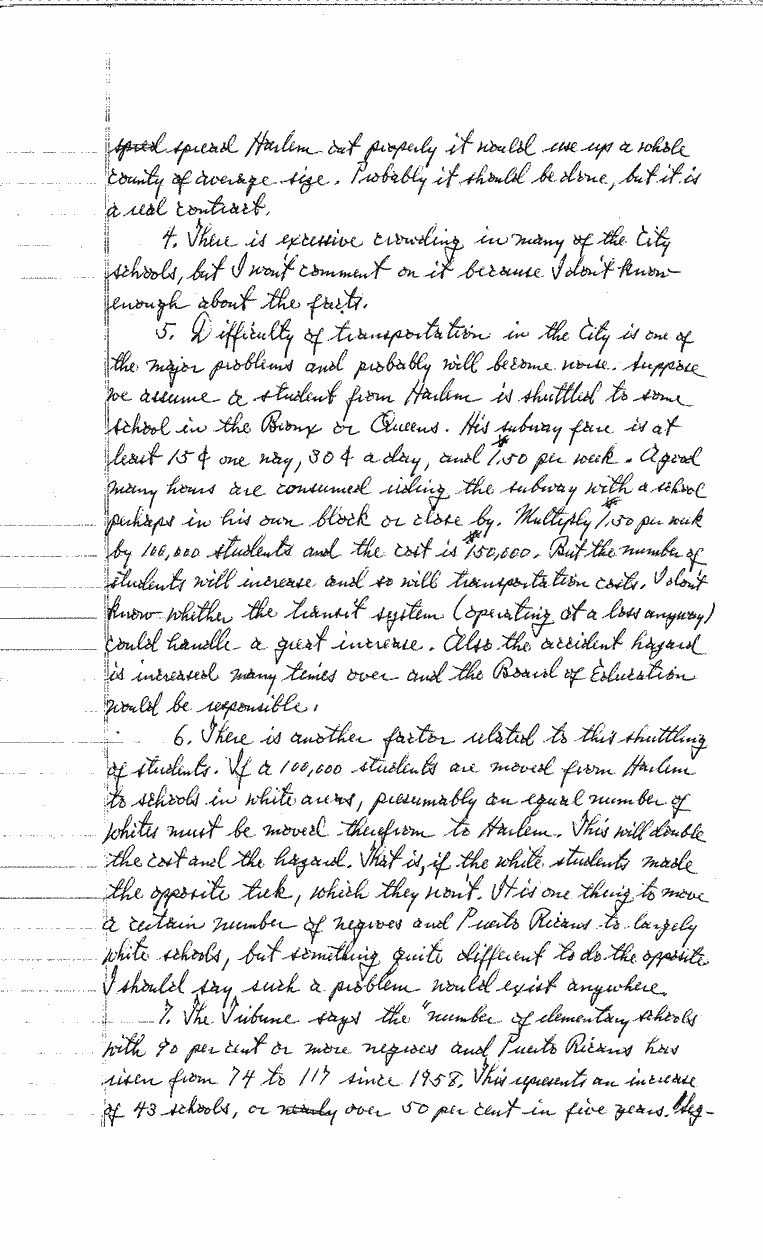 spred spread Harlem out properly it would use up a whole
county of average size. Probably it should be done, but it is
a real contract.
4. There is excessive crowding in many of the City
schools, but I won't comment on it because I don't know
enough about the facts.
5. Difficulty of transportation in the City is one of
the major problems and probably will become worse. Suppose
we assume a student from Harlem is shuttled to some
school in the Bronx or Queens. His subway fare is at
least 15¢ one way, 30¢ a day, and $1.50 per week. A good
many hours are consumed riding the subway with a school
perhaps in his own block or close by. Multiply $1.50 per week
by 100,000 students and the cost is $150,000. But the number of
students will increase and so will transportation costs. I don't
know whether the transit system (operating at a loss anyway)
could handle a great increase. Also the accident hazard
is increased many times over and the Board of Education
would be responsible.
6. There is another factor related to this shuttling
of students. If a 100,000 students are moved from Harlem
to schools in white areas, presumably an equal number of
whites must be moved therefrom to Harlem. This will double
the cost and the hazard. That is, if the white students made
the opposite trek, which they won't. It is one thing to move
a certain number of negroes and Puerto Ricans to largely
white schools, but something quite different to do the opposite
I should say such a problem would exist anywhere.
7. The Tribune says the "number of elementary schools
with 90 per cent or more negroes and Puerto Ricans has
risen from 74 to 117 since 1958. This represents an increase
of 43 schools, or nearly over 50 per cent in five years. Seg-